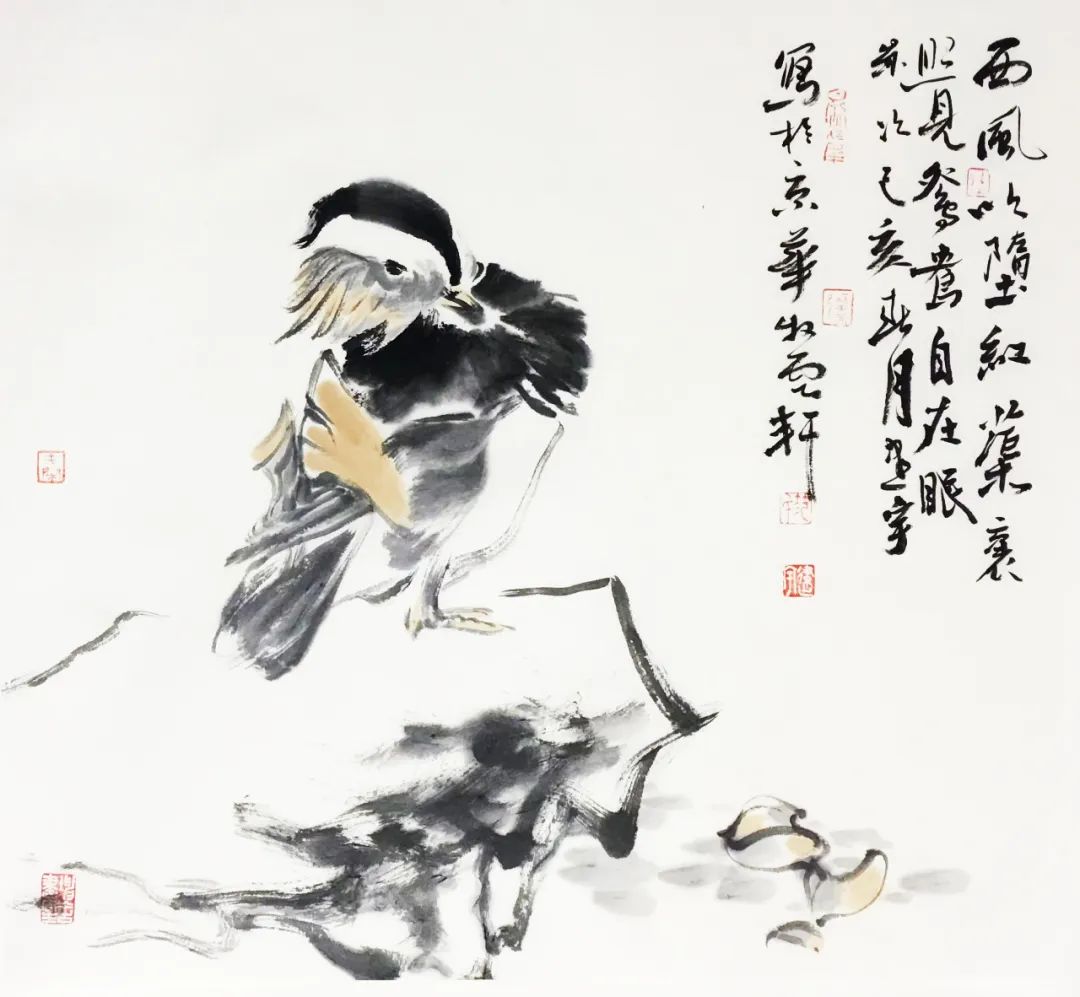 西風吹墮紅蕖裏
照見鴛鴦自在眠
歲次己亥春月建宇
寫於京華牧雲軒